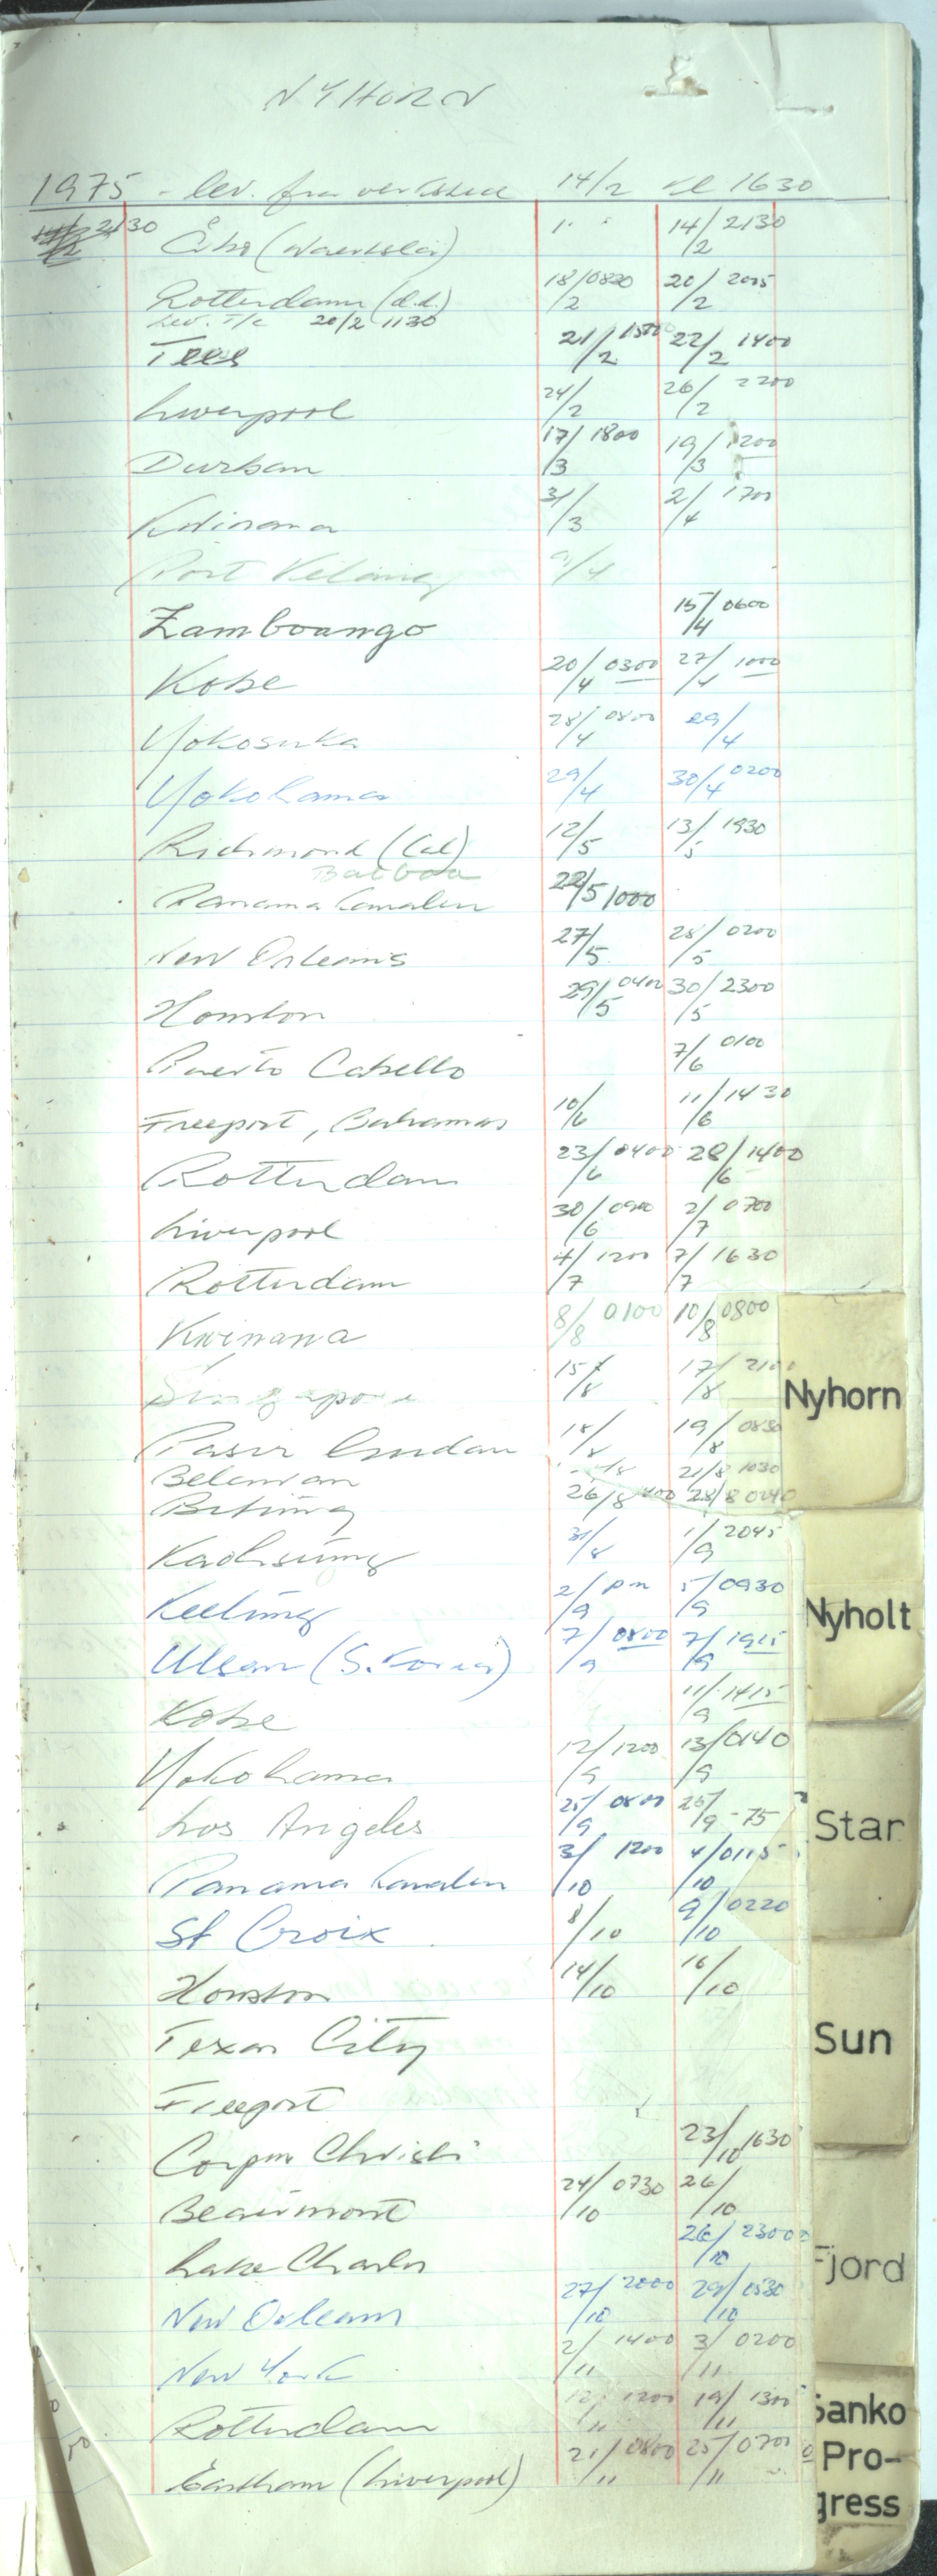 NYHORN
1975 - lev. fra verksted 14/2 kl 1630
2130
Åbo (Waertsla) 14/2 2130
Rotterdam (d.d.) 18/2 0820 20/2
Lev. T/c 20/2 1130
Tees 21/2 1500 22/2 1400
Liverpool 24/2 26/2 2200
Durban 17/3 1800 19/3 1200
Kwinana 31/3 2/4 1700
Port Kelang 9/4
Zamboango 15/4 0600
Kobe 20/4 0300 27/4 1000
Yokosuka 28/4 0800 29/4
Yokohama 29/4 30/4 0200
Richmond (Cal) 12/5 13/5 1930
Balboa
Panama Canalen 22/5 1000
New Orleans 27/5 28/5 0200
Houston 29/5 0400 30/5 2300
Puerto Cabello 7/6 0100
Freeport, Bahamas 10/6 11/6 1430
Rotterdam 23/6 0400 28/6 1400
Liverpool 30/6 0900 2/7 0700
Rotterdam 4/7 1200 7/7 1630
Kwinana 8/8 0100 10/8 0800
Singapore 15/8 17/8 2100
Pasir Gudan 18/8 19/8 0830
Belawan 21/8 1030
Bitung 26/8 28/8 0040
Kaohsiung 31/8 1/9 2045
Keelung 2/9 pm 5/9 0930
Ulsan (S. Korea) 7/9 0800 7/9 1915
Kobe 11/9 1415
Yokohama 12/9 1200 13/9 0140
Los Angeles 25/9 0800 25/9-75
Panama Canalen 3/10 1200 4/10 0115
St Croix 8/10 9/10 0220
Houston 14/10 16/10
Texas City
Freeport
Corpus Christi 23/10 1630
Beaumont 24/10 0730 26/10
Lake Charles 26/10 2300
New Orleans 27/10 2000 29/10 0530
New York 2/11 1400 3/11 0200
Rotterdam 12/11 1200 19/11 1300
Eastham (Liverpool) 21/11 0800 25/11 0700
Nyhorn
Nyholt
Star
Sun
Fjord
Sanko
Pro-
gress